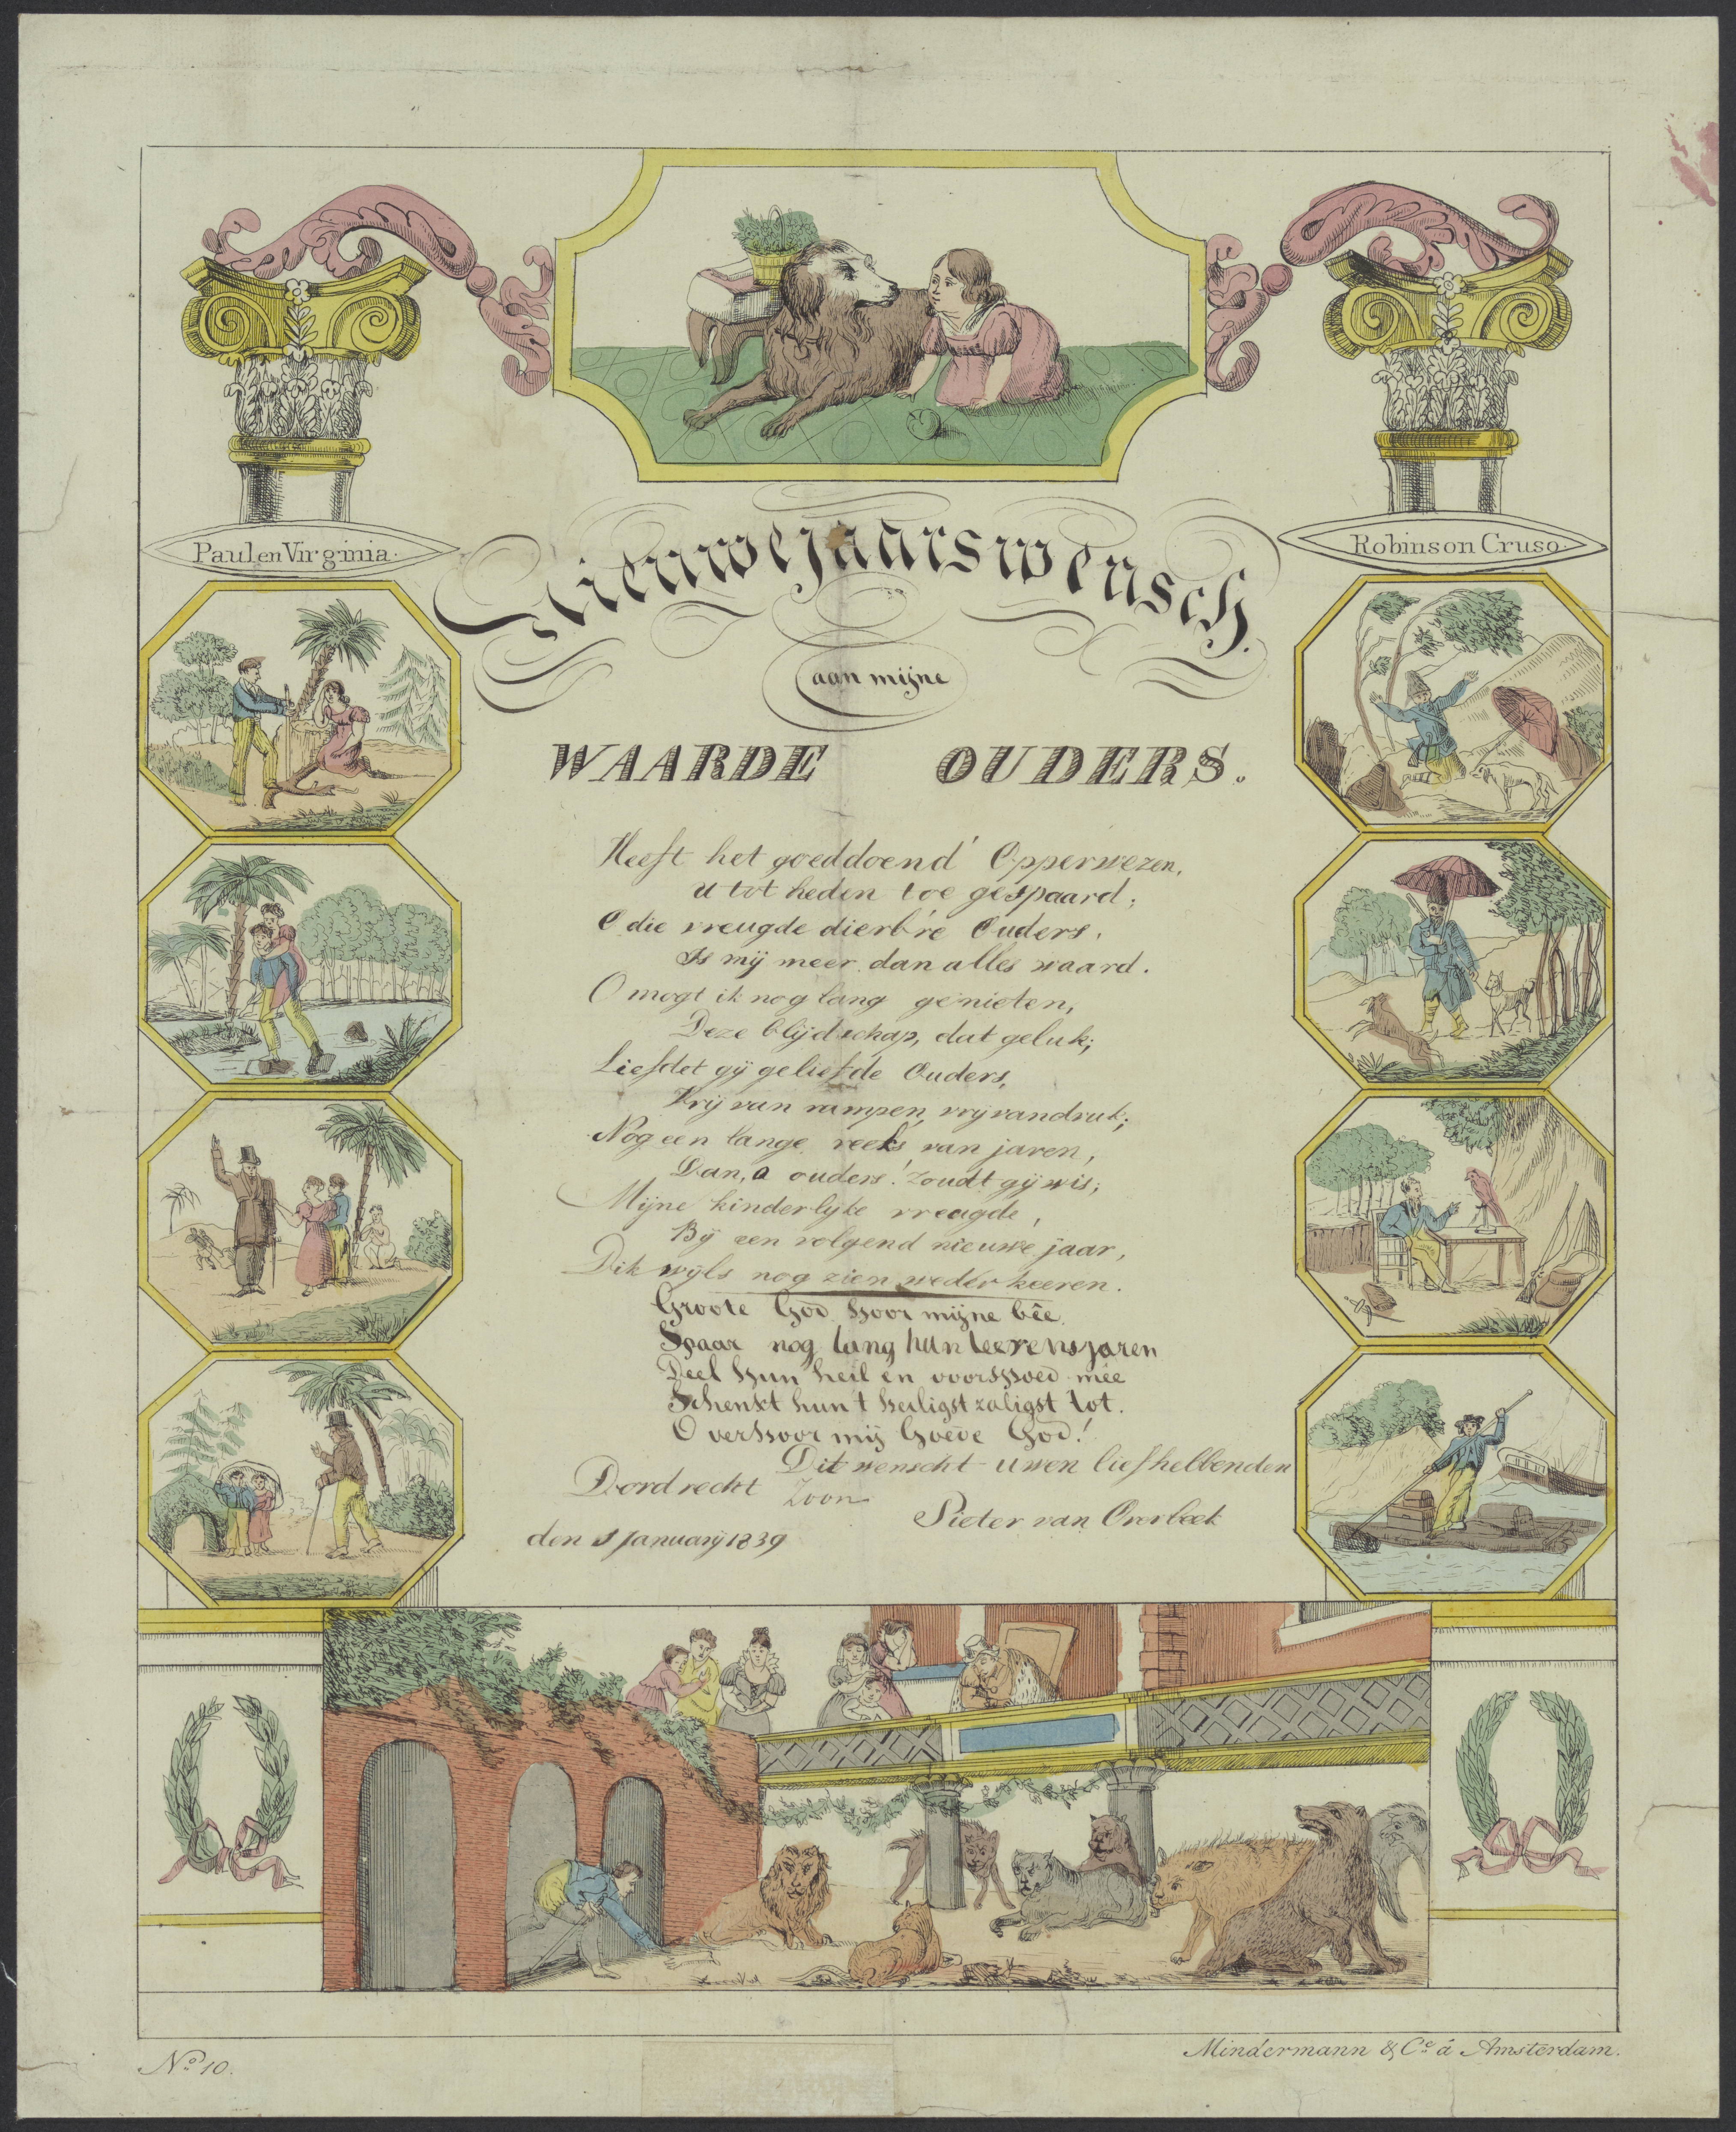 Paul en Virginia.
Robinson Cruso.
Nieuwejaarswensch.
aan mijne
WAARDE OUDERS.
Heeft het goeddoend' Opperwezen,
u tot heden toe gespaard;
O die vreugde dierb're Ouders,
Is mij meer dan alles waard.
O mogt ik nog lang genieten,
Deze blijdschap, dat geluk;
Liefdet gij geliefde Ouders,
Vrij van rampen, vrij van druk;
Nog een lange reeks van jaren,
Dan, o ouders! zoudt gij wis;
Mijne kinderlyke vreugde,
Bij een volgend nieuwe jaar,
Dikwyls nog zien wederkeeren.
Groote God hoor mijne bêe
Spaar nog lang hun leevensjaren
Deel hun heil en voorspoed meê
Schenkt hun 't heiligst zaligst lot.
O verhoor mij Goede God!
Dit wenscht uwen liefhebbenden
Dordrecht Zoon
Pieter van Overbeek
den 1 January 1839
No 10.
Mindermann & Ce á Amsterdam.